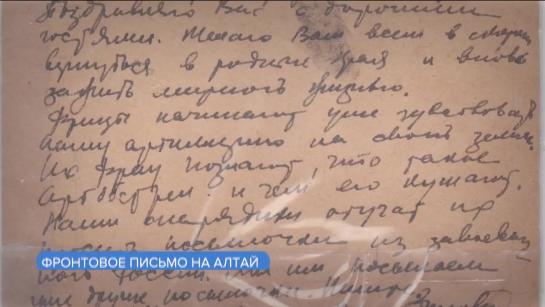 Поздравляю Вас с дорогими
гостями. Желаю Вам всем в скором
вернуться в родные края и вновь
зажить мирной жизнью.
Фрицы начинают уже чувствовать
нашу артиллерию на своей земле.
Их фрау познают, что такое
артобстрел и чем его кушают.
Наши снарядики отучат их
посылочки из завоеван
ной России. Мы им посылаем
уже другие посылочки.
ФРОНТОВОЕ ПИСЬМО НА АЛТАЙ